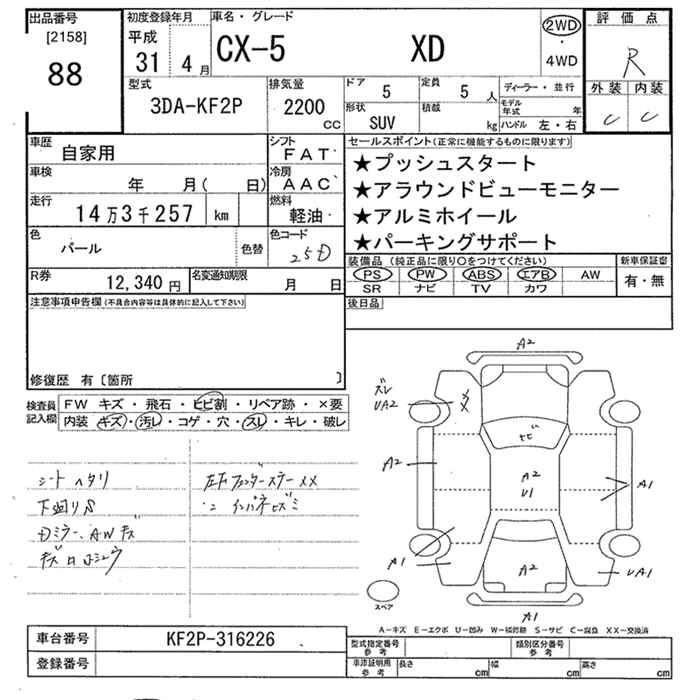 出品番号
[2158]
88
初度登録年月
平成
31 4月
車名・グレード
CX-5 XD
2WD
・
4WD
評価点
R
外装 内装
C C
型式
3DA-KF2P
排気量
2200
CC
ドア
5
定員
5 人
形状
SUV
積載
kg
ディーラー・並行
モデル年式 年
ハンドル 左・右
車歴
自家用
シフト
FAT
車検
年 月( 日)
冷房
AAC
走行
14万3千257 km
燃料
軽油
色
パール
色替
色コード
25D
R券
12,340 円
名変通知期限
月 日
セールスポイント(正常に機能するものに限ります)
★プッシュスタート
★アラウンドビューモニター
★アルミホイール
★パーキングサポート
装備品 (純正品に限り○をつけてください)
PS PW ABS エアB AW
SR ナビ TV カワ
新車保証書
有・無
後日品
注意事項申告欄(不具合内容等は具体的に記入して下さい)
修復歴 有〔箇所 〕
検査員記入欄
FW キズ・飛石・ヒビ割・リペア跡・×要
内装 キズ・汚レ・コゲ・穴・スレ・キレ・破レ
シート ヘタリ
下回りS
左Fフェンダーステー XX
A2
ズレ
UA2
XX
ヒビ
A2
A2
U1
A1
A1
A2
UA1
A1
スペア
A-キズ E-エクボ U-凹み W-補修跡 S-サビ C-腐食 XX-交換済
車台番号
KF2P-316226
登録番号
型式指定番号
参考
類別区分番号
参考
車庫証明用
参考
長さ cm
幅 cm
高さ cm